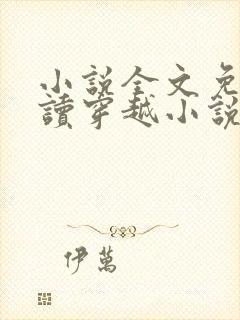 小說全文免
讀穿越小說
伊萬